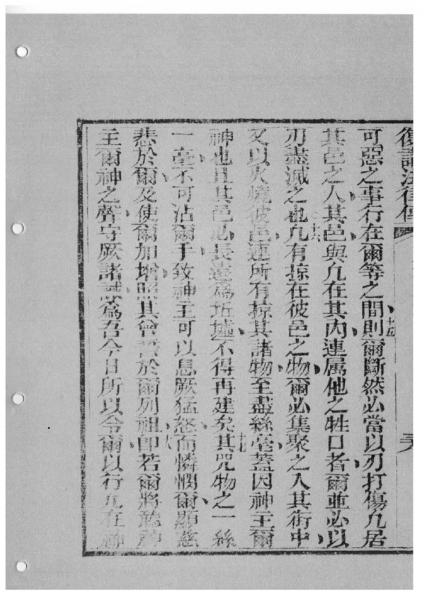 復講法律傳
可惡之事行在爾等之間則爾斷然必當以刃打傷凡居
其邑之人其邑與凡在其內連属他之牲口者爾並必以
刃盡滅之也凡有掠在彼邑之物爾必集聚之入其街中
又以火燒彼邑連所有掠其諸物至盡絲毫蓋因神主爾
神也且其邑必長遠為坵墟不得再建矣其咒物之一絲
一毫不可沾爾手致神主可以息厥猛怒而憐憫爾顯慈
悲於爾及使爾加增照其曾誓於爾列祖即若爾將聽神
主爾神之聲守厥諸誡為吾今日所以令爾以行凡在神